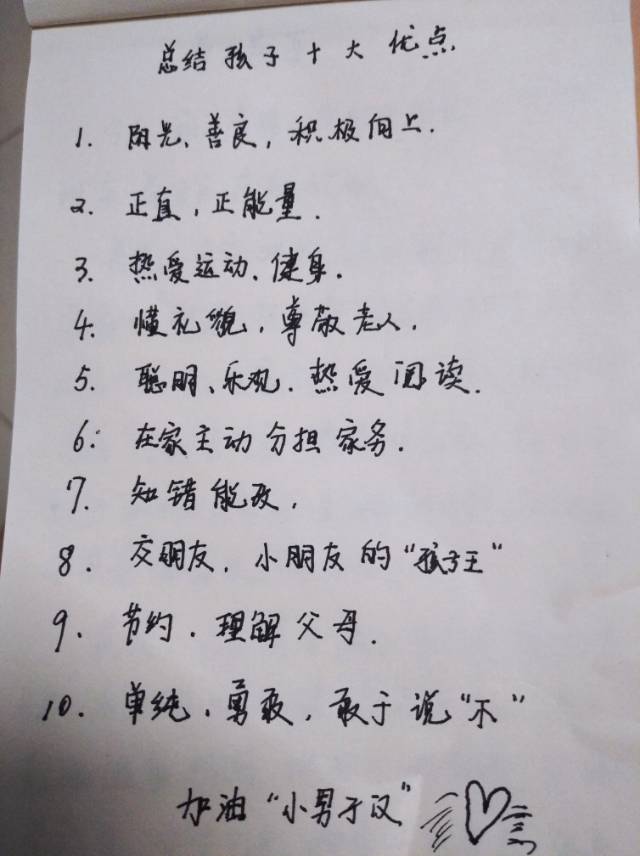 总结孩子十大优点
1. 阳光、善良，积极向上.
2. 正直，正能量.
3. 热爱运动、健身.
4. 懂礼貌，尊敬老人.
5. 聪明、乐观、热爱阅读.
6: 在家主动分担家务.
7. 知错能改，
8. 交朋友，小朋友的“孩子王”
9. 节约、理解父母.
10. 单纯、勇敢，敢于说“不”
加油“小男子汉”